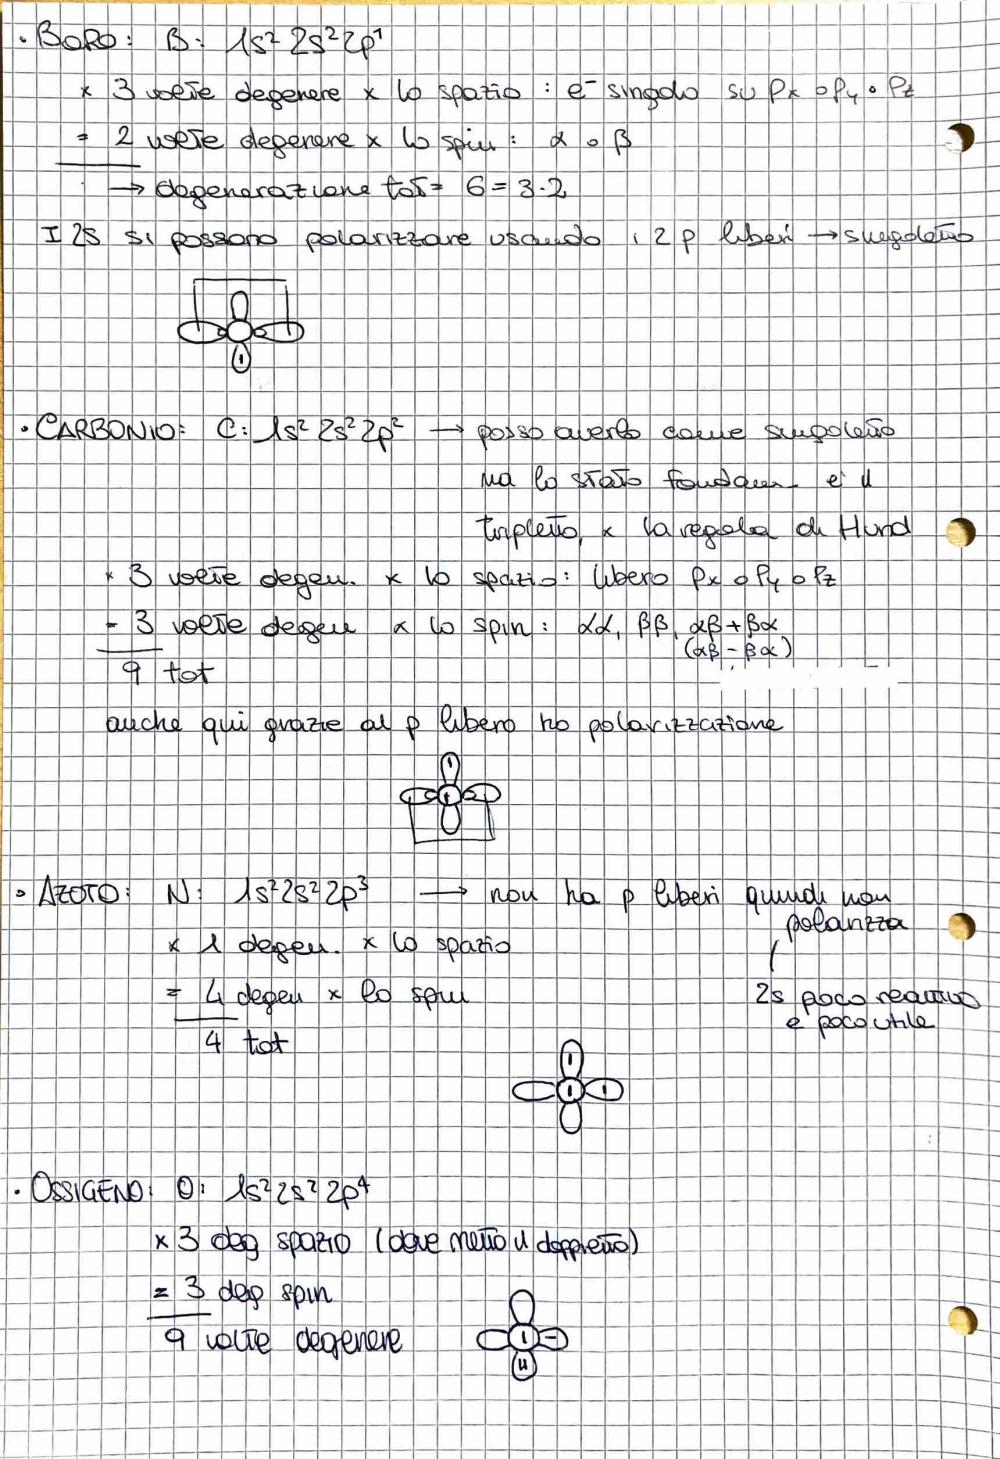 · BORO: B: 1s² 2s² 2p¹
× 3 volte degenere × lo spazio: e⁻ singolo su px o py o pz
= 2 volte degenere × lo spin: α o β
→ degenerazione tot = 6 = 3·2
I 2s si possono polarizzare usando i 2p liberi → singoletto
· CARBONIO: C: 1s² 2s² 2p² → posso averlo come singoletto
ma lo stato fondam. è il
tripletto, × la regola di Hund
× 3 volte degen. × lo spazio: libero px o py o pz
= 3 volte degen × lo spin: αα, ββ, αβ+βα
(αβ-βα)
9 tot
anche qui grazie al p libero ho polarizzazione
· AZOTO: N: 1s² 2s² 2p³ → non ha p liberi quindi non
polarizza
× 1 degen. × lo spazio
= 4 degen × lo spin
2s poco reattivo
e poco utile
4 tot
· OSSIGENO: O: 1s² 2s² 2p⁴
× 3 deg spazio (dove metto il doppietto)
= 3 deg spin
9 volte degenere